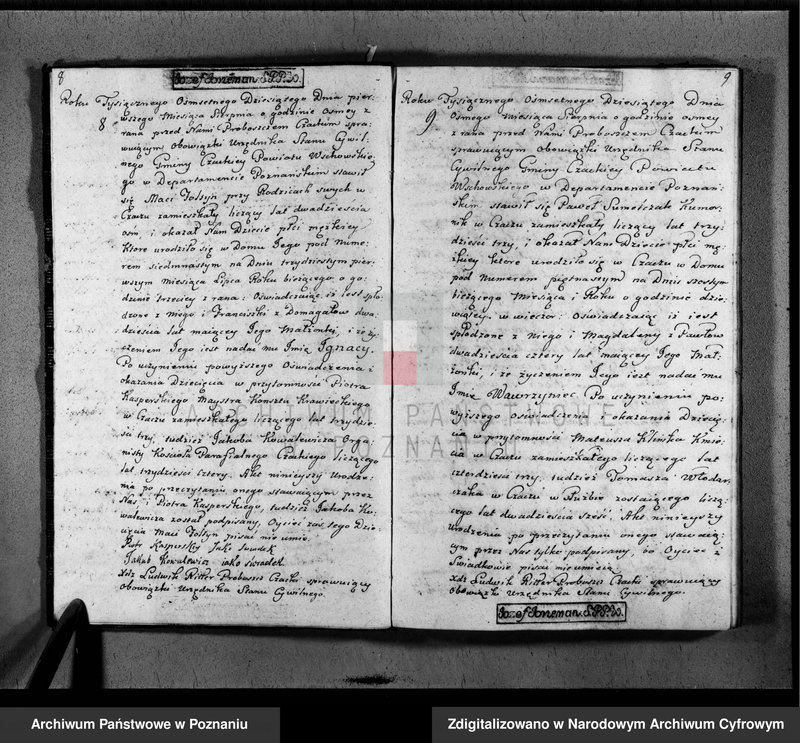 8
Jozef Jozeman S.P.P.
Roku Tysiącznego Osmsetnego Dziesiątego Dnia pier-
8
wszego Miesiąca Sierpnia o godzinie osmey z
rana przed Nami Proboszczem Czackim spra-
wuiącym Obowiązki Urzędnika Stanu Cywil-
nego Gminy Czackiey Powiatu Wschowskie-
go w Departamencie Poznańskim stawił
się Maci przy Rodzicach swych w
Czaczu zamieszkały liczący lat dwadzieścia
osm i okazał Nam Dziecie płci męzkiey
ktore urodziło się w Domu Jego pod Nume-
rem siedmnastym na Dniu trzydziestym pier-
wszym Miesiąca Lipca Roku bieżącego o go-
dzinie trzeciey z rana: Oświadczaiąc iż iest spło-
dzone z Niego i Franciszki z Domagałow dwa-
dzieścia lat maiącey Jego Małżonki, i że ży-
czeniem Jego iest nadać mu Imię Ignacy.
Po uczynieniu powyższego Oświadczenia i
okazania Dziecięcia w przytomności Piotra
Kasperskiego Maystra Konsztu Krawieckiego
w Czaczu zamieszkałego liczącego lat trzydzie-
ści trzy, tudzież Jakoba Kowalewicza Orga-
nisty Kościoła Parafialnego Czackiego liczącego
lat trzydzieści cztery. Akt ninieyszy Urodze-
nia po przeczytaniu onego stawaiącym przez
Nas i Piotra Kasperskiego, tudzież Jakoba Ko-
walewicza został podpisany, Oyciec zaś tego Dzie-
cięcia Maci pisać nie umie.
Piotr Kasperski jako świadek
Jakub Kowalewicz jako świadek
Xdz Ludwik Ritter Proboszcz Czacki sprawuiący
Obowiązki Urzędnika Stanu Cywilnego.
9
Roku Tysiącznego Osmsetnego Dziesiątego Dnia
9
Osmego Miesiąca Sierpnia o godzinie osmey
z rana przed Nami Proboszczem Czackim
sprawuiącym Obowiązki Urzędnika Stanu
Cywilnego Gminy Czackiey Powiatu
Wschowskiego w Departamencie Poznań-
skim stawił się Paweł Komor-
nik w Czaczu zamieszkały liczący lat trzy-
dzieści trzy, i okazał Nam Dziecie płci mę-
zkiey ktore urodziło się w Czaczu w Domu
pod Numerem piętnastym na Dniu szostym
bieżącego Miesiąca i Roku o godzinie dzie-
wiątey w wieczor: Oświadczaiąc iż iest
spłodzone z Niego i Magdaleny z Pawłow
dwadzieścia cztery lat maiącey Jego Mał-
żonki, i że życzeniem Jego iest nadać mu
Imię Wawrzyniec. Po uczynieniu po-
wyższego Oświadczenia i okazania Dziecię-
cia w przytomności Mateusza Klenika Kmie-
cia w Czaczu zamieszkałego liczącego lat
czterdzieści trzy, tudzież Tomasza Włodar-
czaka w Czaczu w służbie zostaiącego liczą-
cego lat dwadzieścia sześć. Akt ninieyszy
Urodzenia po przeczytaniu onego stawaią-
cym przez Nas tylko podpisany, bo Oyciec i
Swiadkowie pisać nie umieią.
Xdz Ludwik Ritter Proboszcz Czacki sprawuiący
Obowiązki Urzędnika Stanu Cywilnego.
Jozef Jozeman S.P.P.
ARCHIWUM PAŃSTWOWE
POZNAŃ
Archiwum Państwowe w Poznaniu
Zdigitalizowano w Narodowym Archiwum Cyfrowym